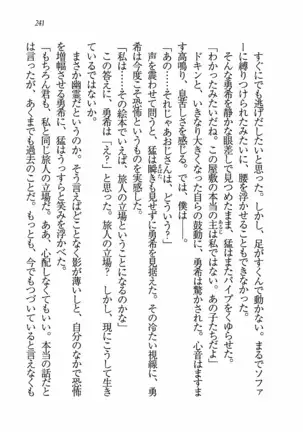 241
すぐにでも逃げだしたいと思った。しかし、足がすくんで動かない。まるでソファ
ーに縛りつけられたみたいに、腰を浮かせることもできなかった。
そんな勇希を静かな眼差しで見つめたまま、猛はまたパイプをくゆらせた。
「わかったみたいだね。この屋敷の本当の主は私ではない。あの子たちだよ」
ドキンと、いきなり大きくなった自らの鼓動に、勇希は驚かされた。心音はますま
す高鳴り、息苦しさを感じる。では、僕は――。
「あの……。それじゃあおじさんは、どういう？」
声を震わせて問う。猛は瞬きも見せずに勇希を見据えた。その冷たい視線に、勇
希は今度こそ恐怖というものを実感した。
「私は……その絵本でいえば、旅人の立場ということになるのかな」
この答えに、勇希は「え？」と思った。旅人の立場？　しかし、現にこうして生き
ているではないか。
まさか幽霊だというのか。そう言えばどことなく影が薄いしと、自分のなかで恐怖
を増幅させる勇希に、猛はうっすらと笑みを浮かべた。
「もちろん君も、私と同じ旅人の立場だ。ああ、心配しなくてもいい。本当の話だと
言ったが、あくまでも過去のことだ。もっとも、今でもつづいていると言えなくも